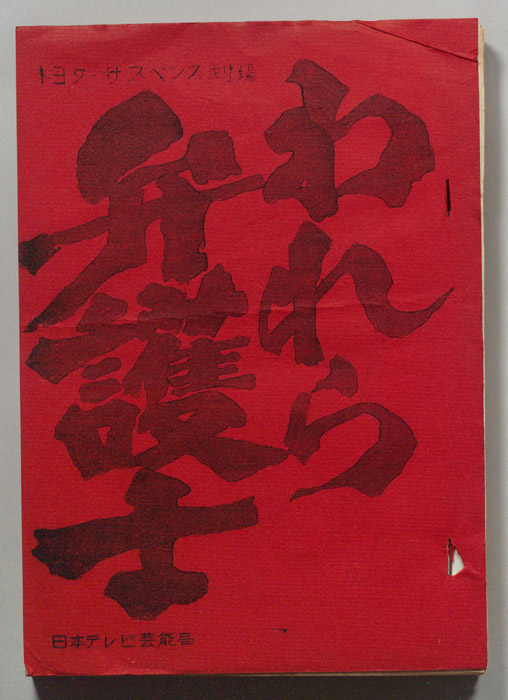 トヨタ・サスペンス劇場
われら
弁護士
日本テレビ芸能局